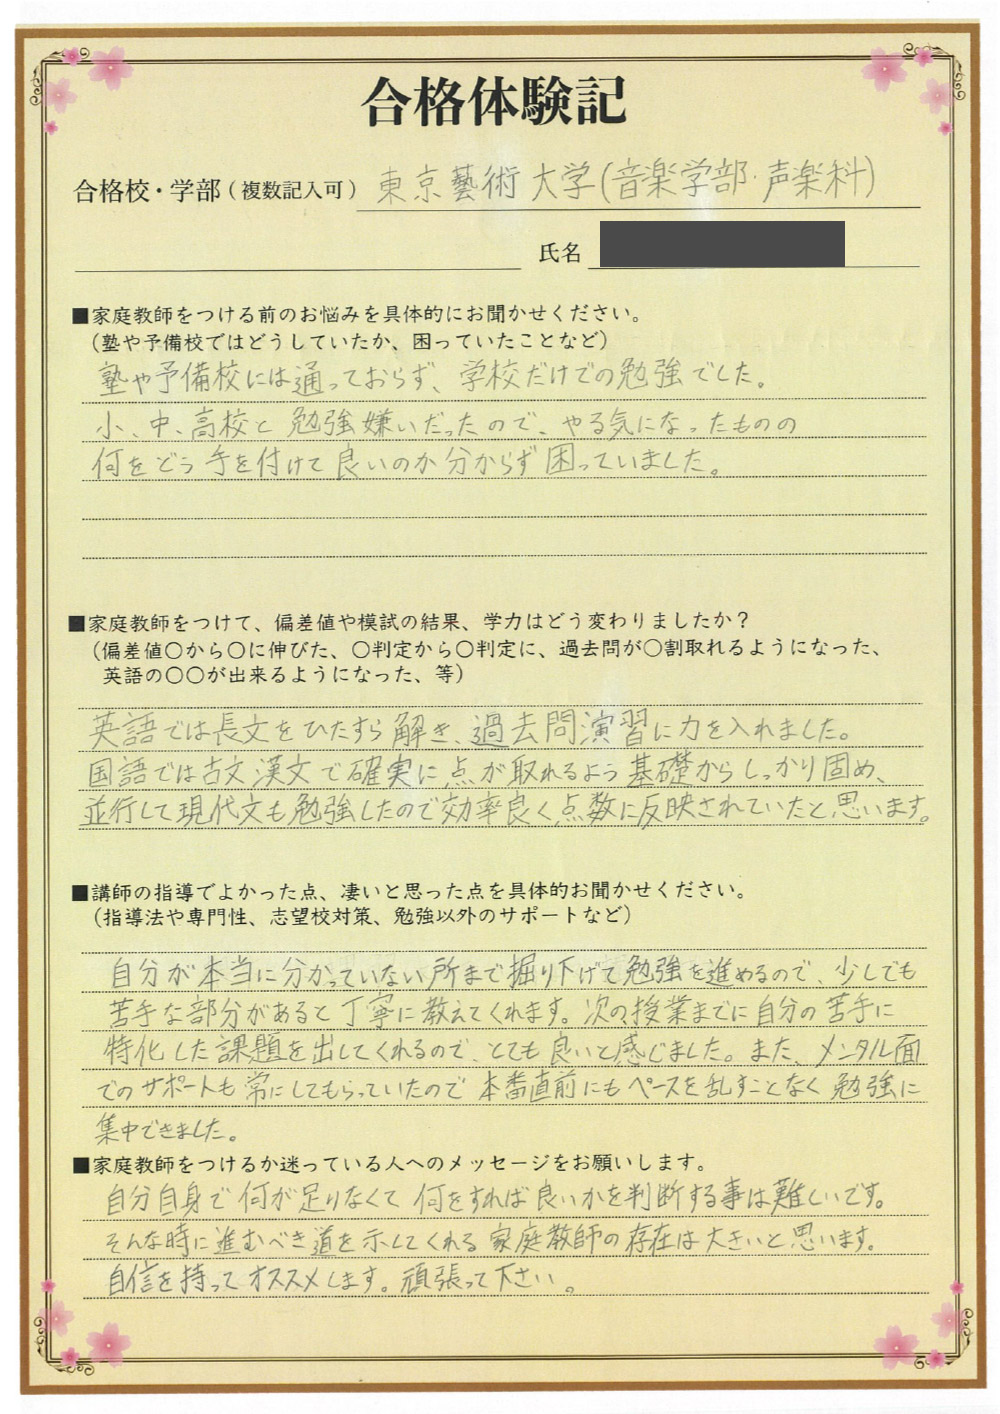 合格体験記
合格校・学部（複数記入可） 東京藝術大学(音楽学部・声楽科)
氏名
■家庭教師をつける前のお悩みを具体的にお聞かせください。
（塾や予備校ではどうしていたか、困っていたことなど）
塾や予備校には通っておらず、学校だけでの勉強でした。
小、中、高校と勉強嫌いだったので、やる気になったものの
何をどう手を付けて良いのか分からず困っていました。
■家庭教師をつけて、偏差値や模試の結果、学力はどう変わりましたか？
（偏差値〇から〇に伸びた、〇判定から〇判定に、過去問が〇割取れるようになった、
英語の〇〇が出来るようになった、等）
英語では長文をひたすら解き、過去問演習に力を入れました。
国語では古文漢文で確実に点が取れるよう基礎からしっかり固め、
並行して現代文も勉強したので効率良く点数に反映されていたと思います。
■講師の指導でよかった点、凄いと思った点を具体的お聞かせください。
（指導法や専門性、志望校対策、勉強以外のサポートなど）
自分が本当に分かっていない所まで掘り下げて勉強を進めるので、少しでも
苦手な部分があると丁寧に教えてくれます。次の授業までに自分の苦手に
特化した課題を出してくれるので、とても良いと感じました。また、メンタル面
でのサポートも常にしてもらっていたので本番直前にもペースを乱すことなく勉強に
集中できました。
■家庭教師をつけるか迷っている人へのメッセージをお願いします。
自分自身で何が足りなくて何をすれば良いかを判断する事は難しいです。
そんな時に進むべき道を示してくれる家庭教師の存在は大きいと思います。
自信を持ってオススメします。頑張って下さい。